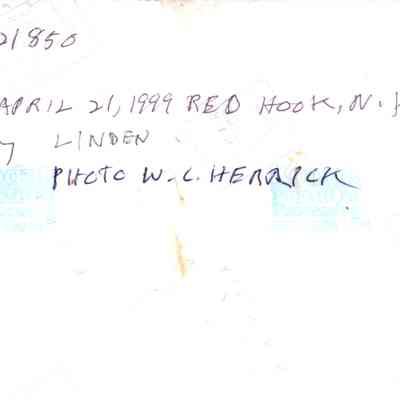 21850
APRIL 21, 1999 RED HOOK, N.
LINDEN
PHOTO W. C. HERRICK